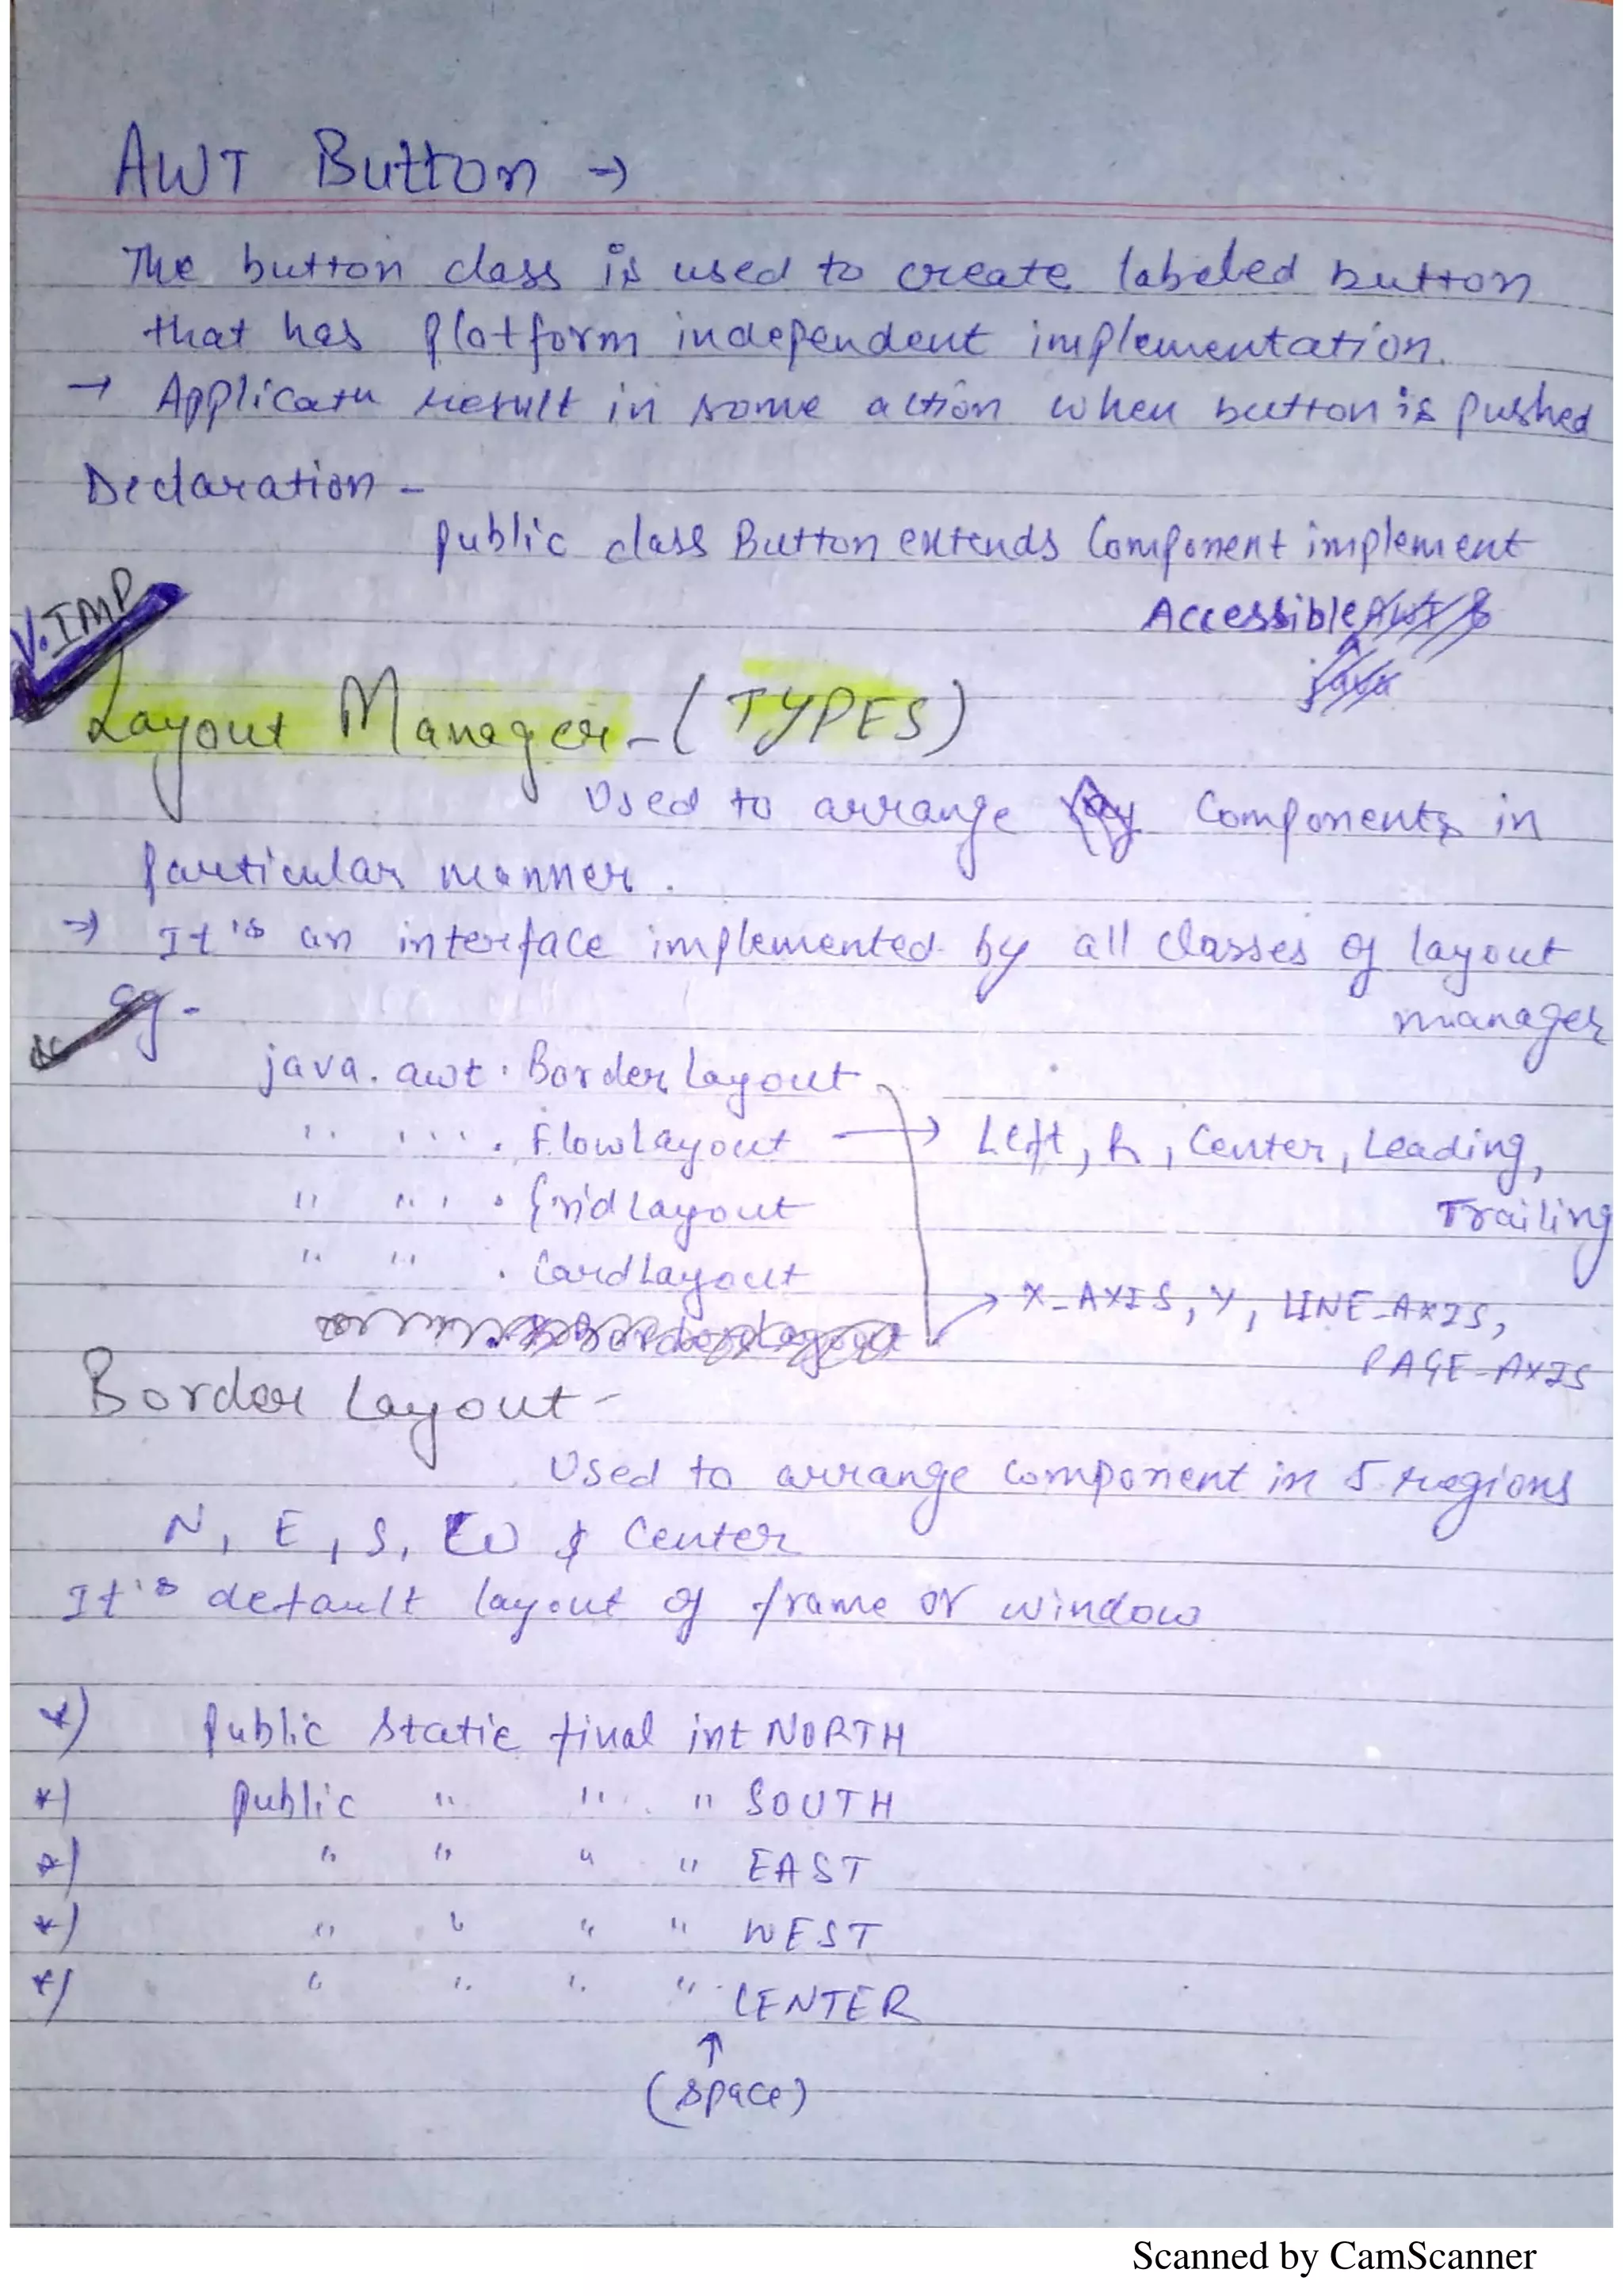 AWT Button →
The button class is used to create labeled button
that has platform independent implementation.
→ Applicatn result in some action when button is pushed
Declaration -
public class Button extends Component implement
Accessible
V. IMP
Layout Manager - (TYPES)
Used to arrange Components in
particular manner.
⇒ It's an interface implemented by all classes of layout
manager
eg -
java.awt.BorderLayout
" " . FlowLayout → Left, R, Center, Leading,
Trailing
" " . GridLayout
" " . CardLayout
→ X_AXIS, Y, LINE_AXIS,
PAGE_AXIS
Border Layout -
Used to arrange component in 5 regions
N, E, S, W & Center
It's default layout of frame or window
*) public static final int NORTH
*) public " " " SOUTH
*) " " " " EAST
*) " " " " WEST
*) " " " " CENTER
↑
(space)
Scanned by CamScanner